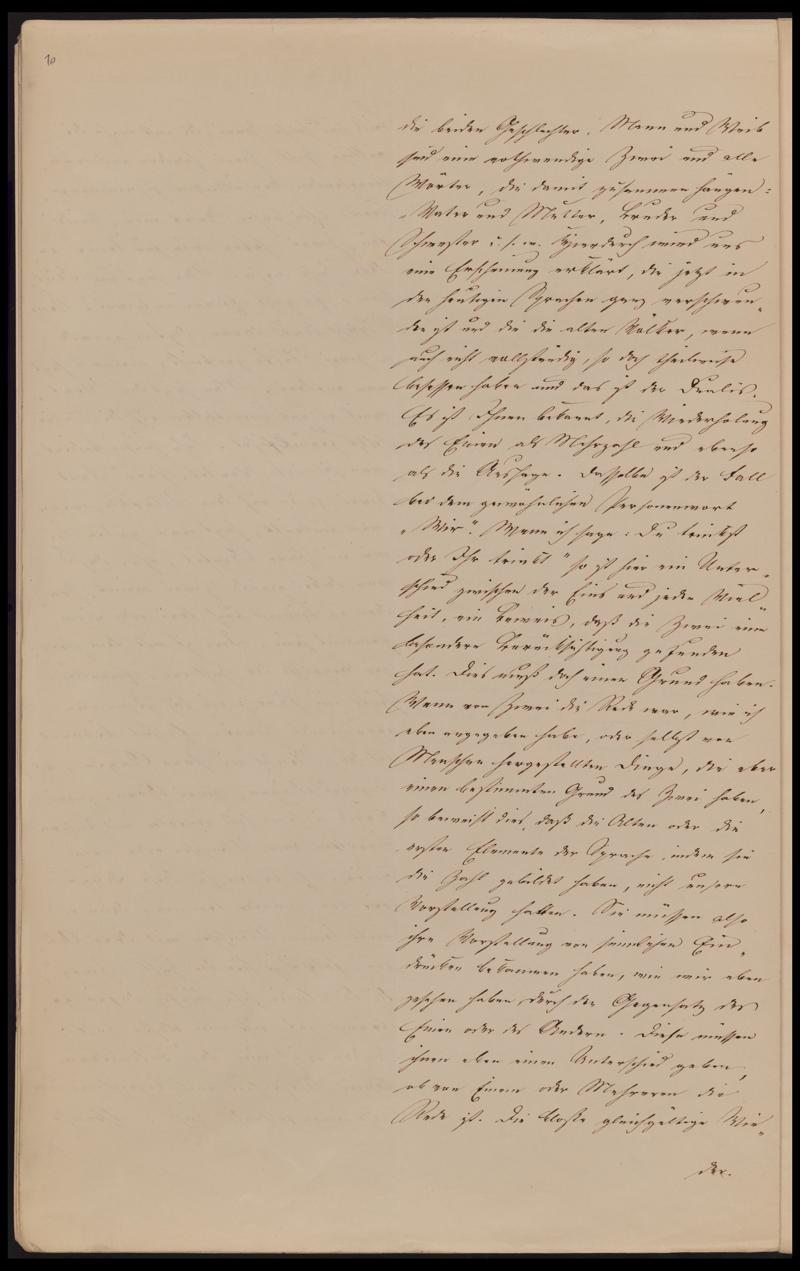 10
die beiden Geschlechter. Mann und Weib
sind eine nothwendige Zwei und alle
Wörter, die damit zusammen hängen:
Vater und Mutter, Bruder und
Schwester u. s. w. Hierdurch wird uns
eine Erscheinung erklärt, die jetzt in
den heutigen Sprachen ganz verschwun-
den ist und die die alten Völker, wenn
auch nicht vollständig, so doch theilweise
besessen haben und das ist der Dualis.
Es ist Ihnen bekannt, die Wiederholung
des Einen als Mehrzahl und ebenso
als die Aussage. Dasselbe ist der Fall
bei dem gewöhnlichen Personenwort
„Wir“. Wenn ich sage: Du trinkst
oder Ihr trinkt“ so ist hier ein Unter-
schied zwischen der Eins und jeder Viel-
heit, ein Beweis, daß die Zwei eine
besondere Berücksichtigung gefunden
hat. Dies muß doch einen Grund haben.
Wenn von Zwei die Rede war, wie ich
eben angegeben habe, oder selbst von
Menschen hergestellten Dinge, die aber
einen bestimmten Grund des Zwei haben,
so beweist dies, daß die Alten oder die
ersten Elemente der Sprache, indem sie
die Zahl gebildet haben, nicht unsere
Vorstellung hatten. Sie müssen also
ihre Vorstellung von sinnlichen Ein-
drücken bekommen haben, wie wir eben
gesehen haben durch den Gegensatz des
Einen oder des Andern. Diese müssen
ihnen eben einen Unterschied geben,
ob von Einem oder Mehreren die
Rede ist. Die bloße gleichgültige Wie-
der-